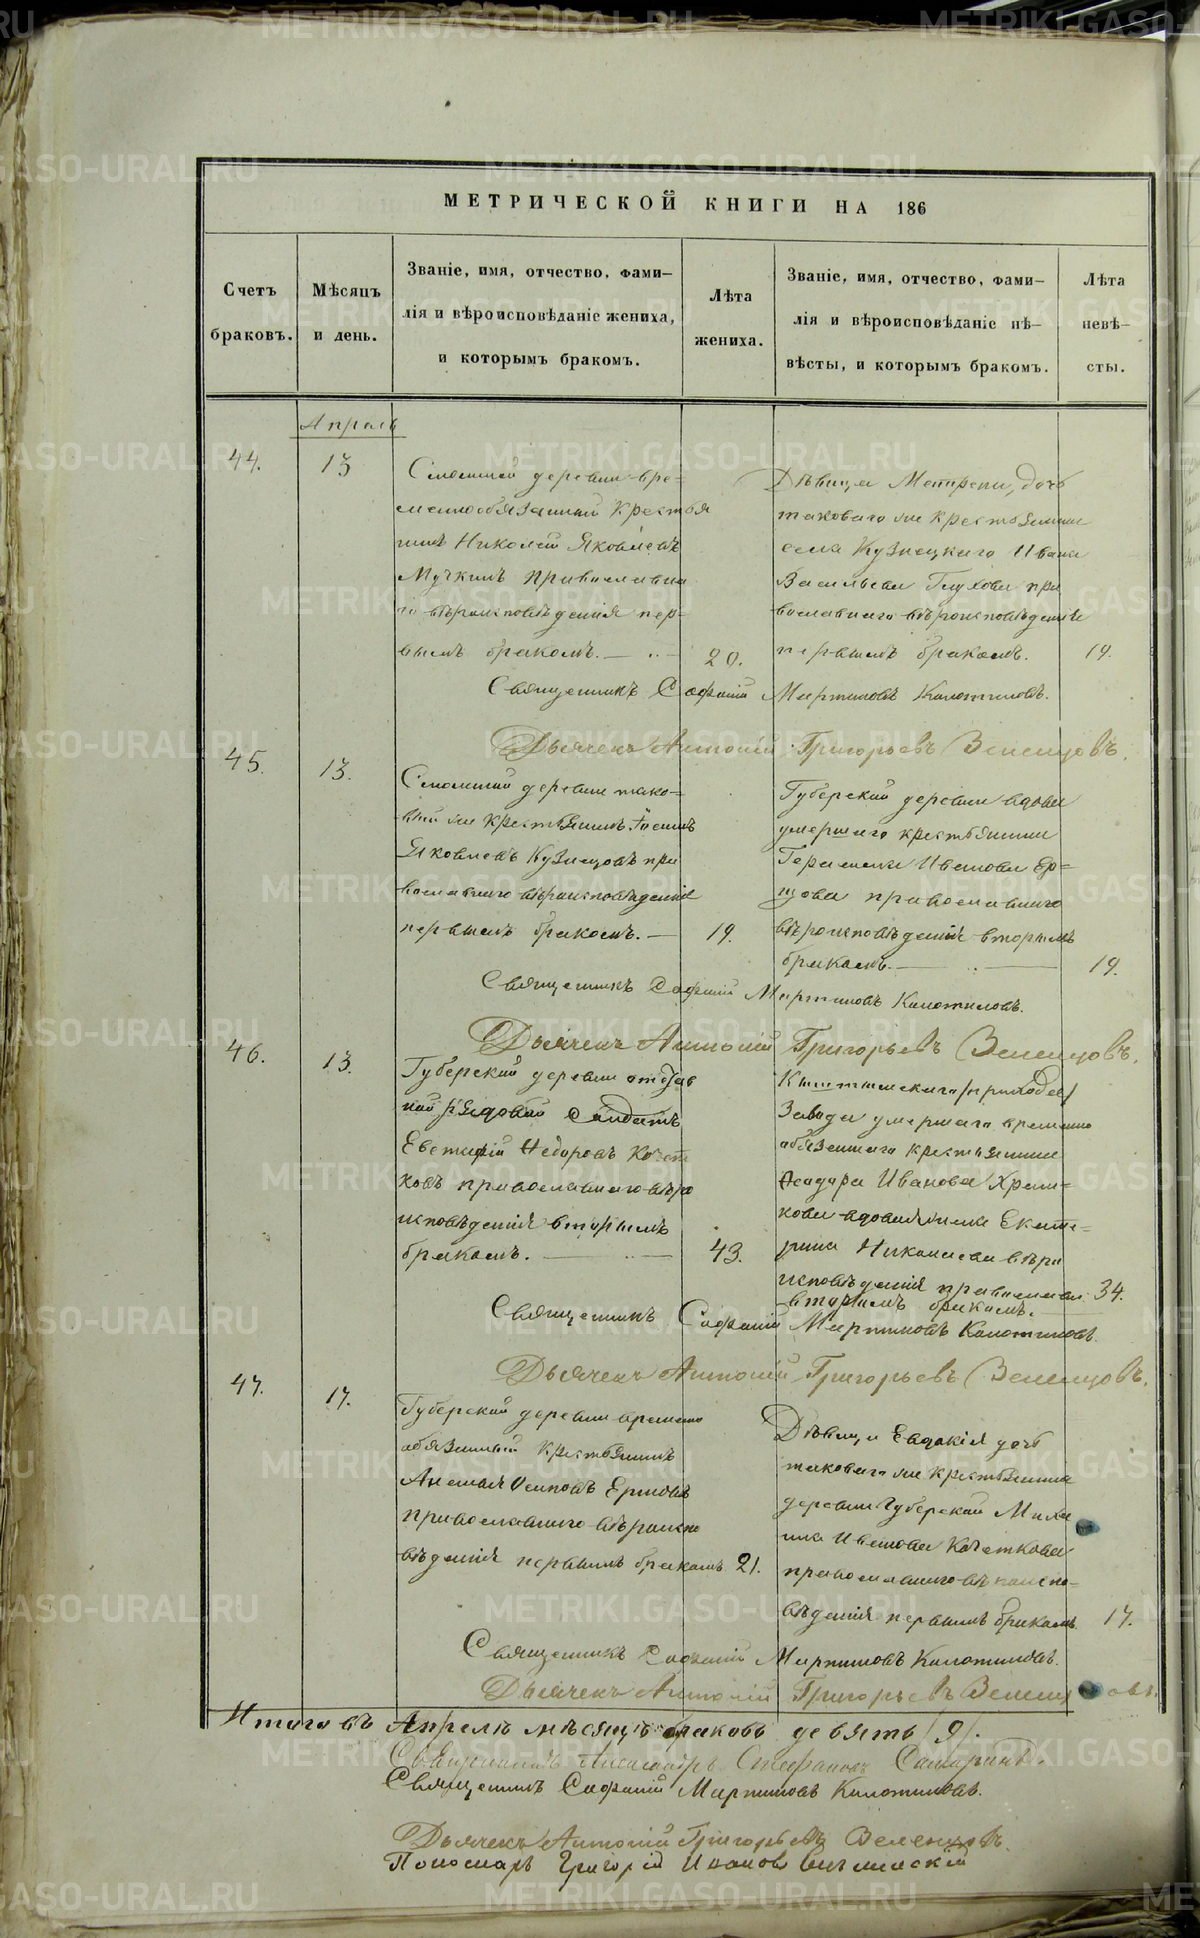 МЕТРИЧЕСКОЙ КНИГИ НА 186
Счетъ браковъ.
Мѣсяцъ и день.
Званіе, имя, отчество, фами-
лія и вѣроисповѣданіе жениха,
и которымъ бракомъ.
Лѣта жениха.
Званіе, имя, отчество, фами-
лія и вѣроисповѣданіе не-
вѣсты, и которымъ бракомъ.
Лѣта невѣ-
сты.
Апрель
44.
13
деревни вре-
меннообязанный крестья
нинъ Николай Яковлевъ
православна
го вѣроисповѣданія пер-
вымъ бракомъ.
20.
Дѣвица Матрена, дочь
таковаго же крестьянина
села Кузнецкаго Ивана
Васильева Глухова пра
вославнаго вѣроисповѣданія
первымъ бракомъ.
19.
Священникъ Софоній Мартиновъ
Дьячекъ Антоній Григорьевъ Зеленцовъ.
45.
13.
деревни тако-
вый же крестьянинъ
Яковлевъ Кузнецовъ пра
вославнаго вѣроисповѣданія
первымъ бракомъ.
19.
Губерской деревни вдова
умершаго крестьянина
Герасима Иванова Ер-
цова православнаго
вѣроисповѣданія вторымъ
бракомъ.
19.
Священникъ Софоній Мартиновъ
Дьячекъ Антоній Григорьевъ Зеленцовъ.
46.
13.
Губерской деревни отстав
ной рядовой солдатъ
Евстафій Федоровъ Кочет
ковъ православнаго вѣро
исповѣданія вторымъ
бракомъ.
43.
Кыштымскаго /прихода/
завода умершаго временно
обязаннаго крестьянина
Федора Иванова Храм-
кова вдова жена Екате-
рина Николаева вѣро
исповѣданія православн.
вторымъ бракомъ.
34.
Священникъ Софоній Мартиновъ
Дьячекъ Антоній Григорьевъ Зеленцовъ.
47.
17.
Губерской деревни временно
обязанный крестьянинъ
Осиповъ
православнаго вѣроиспо
вѣданія первымъ бракомъ
21.
Дѣвица Евдокія дочь
таковаго же крестьянина
деревни Губерской Миха
ила Иванова Кочеткова
православнаго вѣроиспо-
вѣданія первымъ бракомъ.
17.
Священникъ Софоній Мартиновъ
Дьячекъ Антоній Григорьевъ Зеленцовъ.
Итого въ Апрелѣ мѣсяцѣ браковъ девять /9/.
Священникъ Александръ Стефановъ
Священникъ Софоній Мартиновъ
Дьячекъ Антоній Григорьевъ Зеленцовъ.
Пономарь Григорій Ивановъ
METRIKI.GASO-URAL.RU